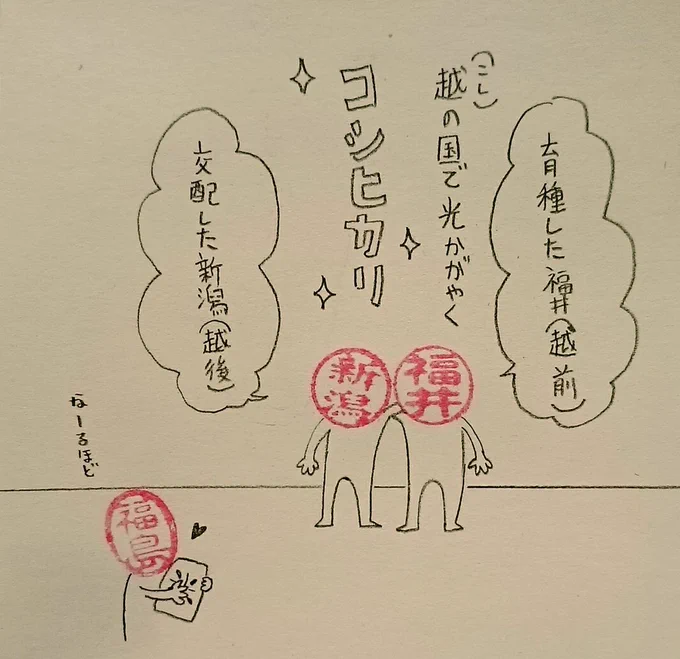 育種した福井(越前)
越(こし)の国で光かがやく
コシヒカリ
交配した新潟(越後)
福井
新潟
なーるほど
福島